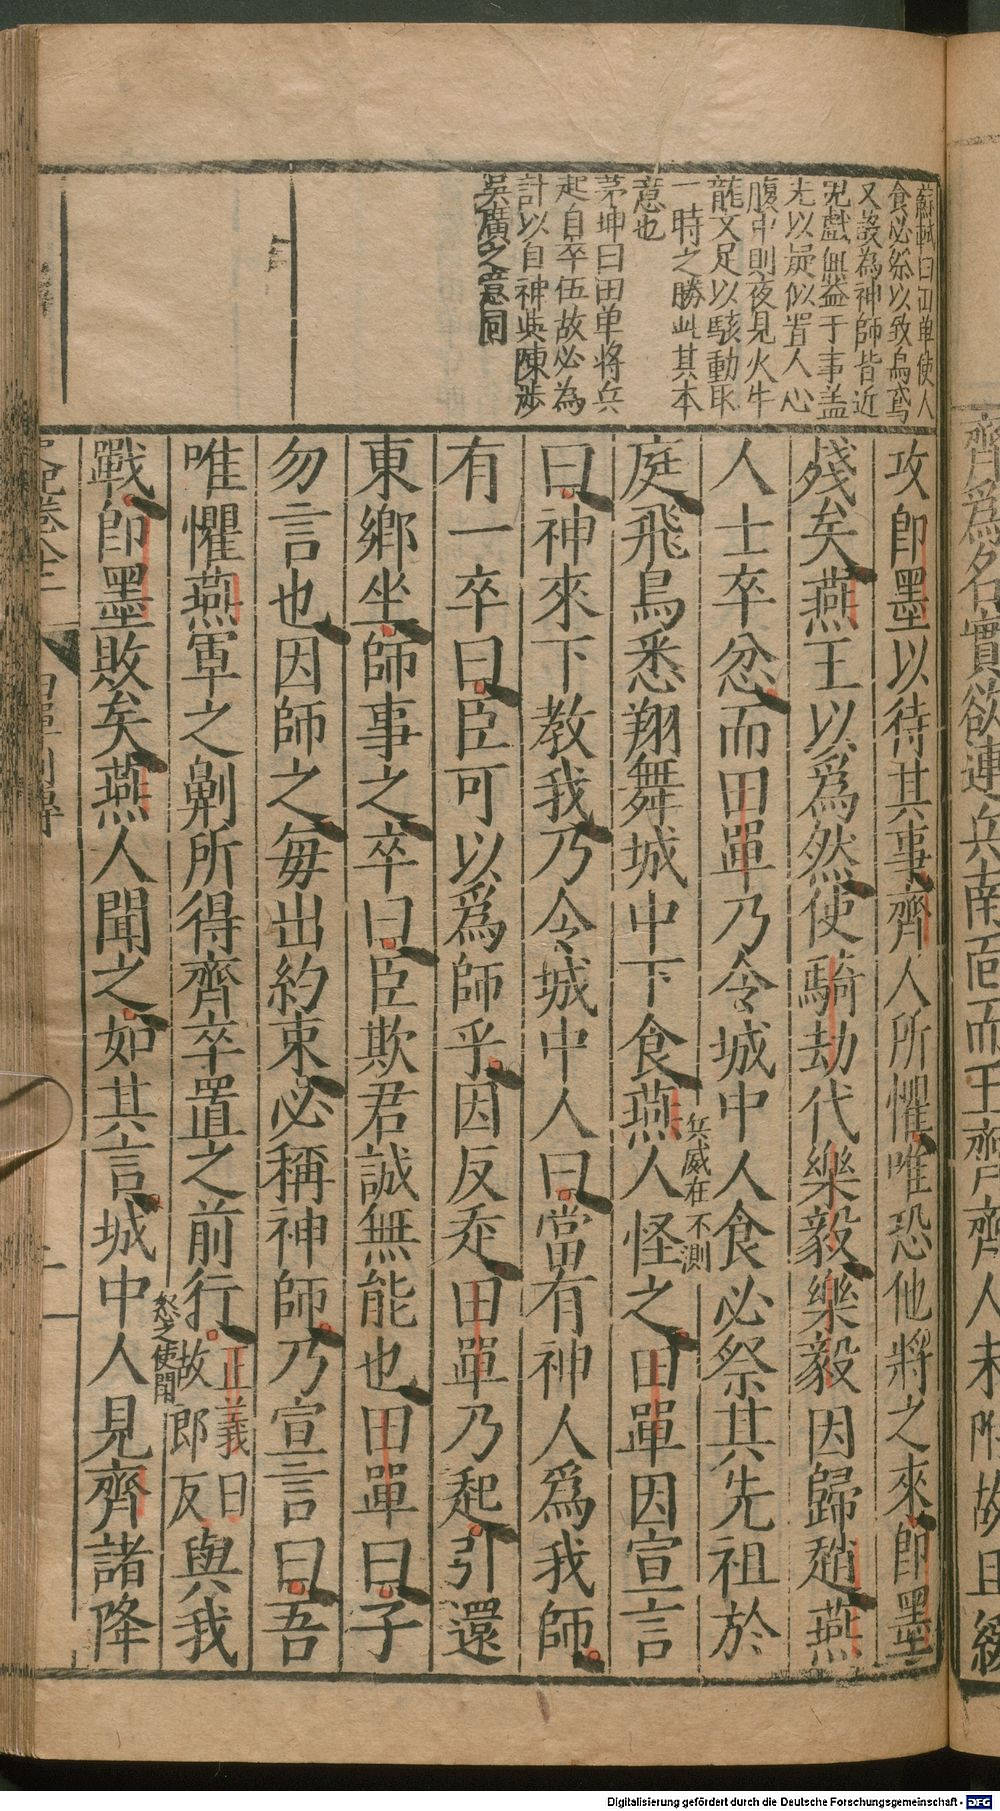 齊爲名實欲連兵南面而王齊齊人未附故且緩
蘇軾曰田单使人
食必祭以致烏鳶
又設為神師皆近
兒戲無益于事盖
先以疑似置人心
腹中則夜見火牛
龍文足以駭動取
一時之勝此其本
意也
茅坤曰田单将兵
起自卒伍故必為
計以自神與陳涉
吳廣之意同
攻即墨以待其事齊人所懼唯恐他將之來即墨
殘矣燕王以爲然使騎劫代樂毅樂毅因歸趙燕
人士卒忿而田單乃令城中人食必祭其先祖於
庭飛鳥悉翔舞城中下食燕人怪之田單因宣言
兵威在不測
曰神來下教我乃令城中人曰當有神人爲我師
有一卒曰臣可以爲師乎因反走田單乃起引還
東鄉坐師事之卒曰臣欺君誠無能也田單曰子
勿言也因師之每出約束必稱神師乃宣言曰吾
唯懼燕軍之劓所得齊卒置之前行正義曰故郎反與我
怒之使鬥
戰即墨敗矣燕人聞之如其言城中人見齊諸降
田單列傳
Digitalisierung gefördert durch die Deutsche Forschungsgemeinschaft - DFG